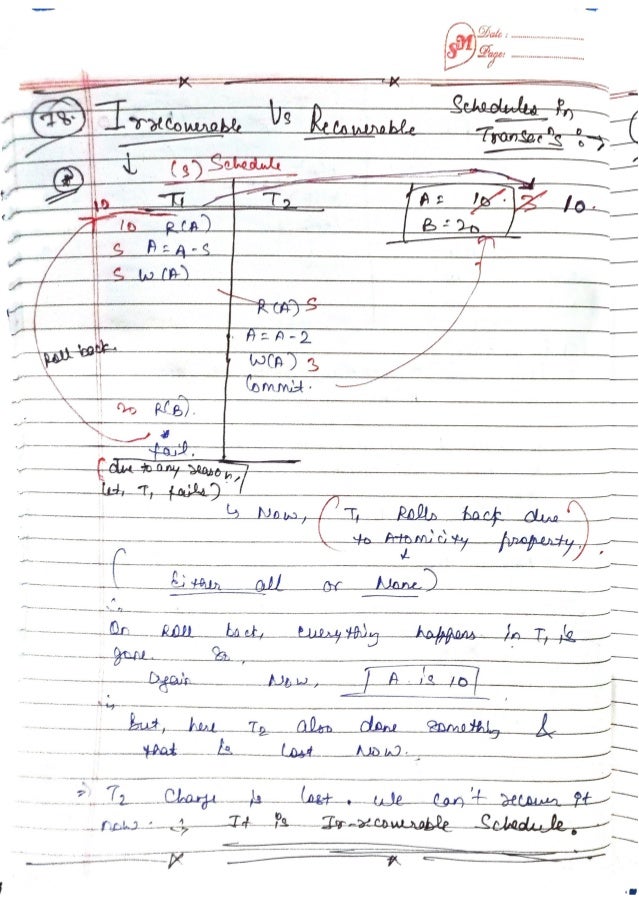 SM Date :
Page:
78. Irrecoverable Vs Recoverable Schedules in
Transac's :→
↓ (S) Schedule
10 T1 T2 A = 10 3 10.
B = 20
10 R(A)
5 A = A - 5
5 W(A)
R(A) 5
A = A - 2
W(A) 3
Commit.
Roll back
20 R(B).
* fail.
(due to any reason,
let, T1 fails)
↳ Now, (T1 Rolls back due
to Atomicity property.)
↓
(Either all or None)
On Roll back, everything happens in T1 is
gone. So,
Again Now, A is 10
But, here T2 also done something &
that is lost Now.
⇒ T2 Change is lost. We can't recover it
now. → It is Ir-recoverable Schedule.